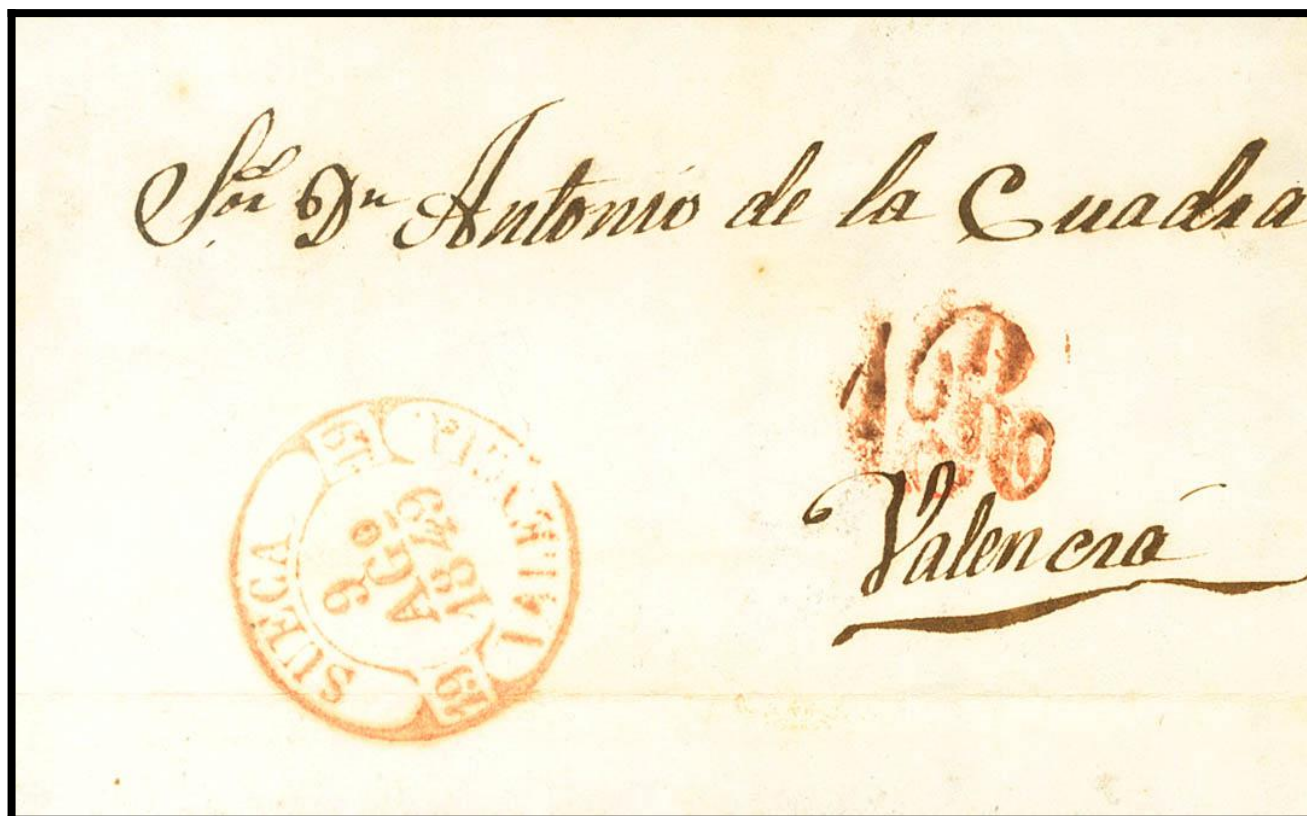 Sor Dn Antonio de la Cuadra
Valencia
SUECA
9
AGO
1849
VALENCIA